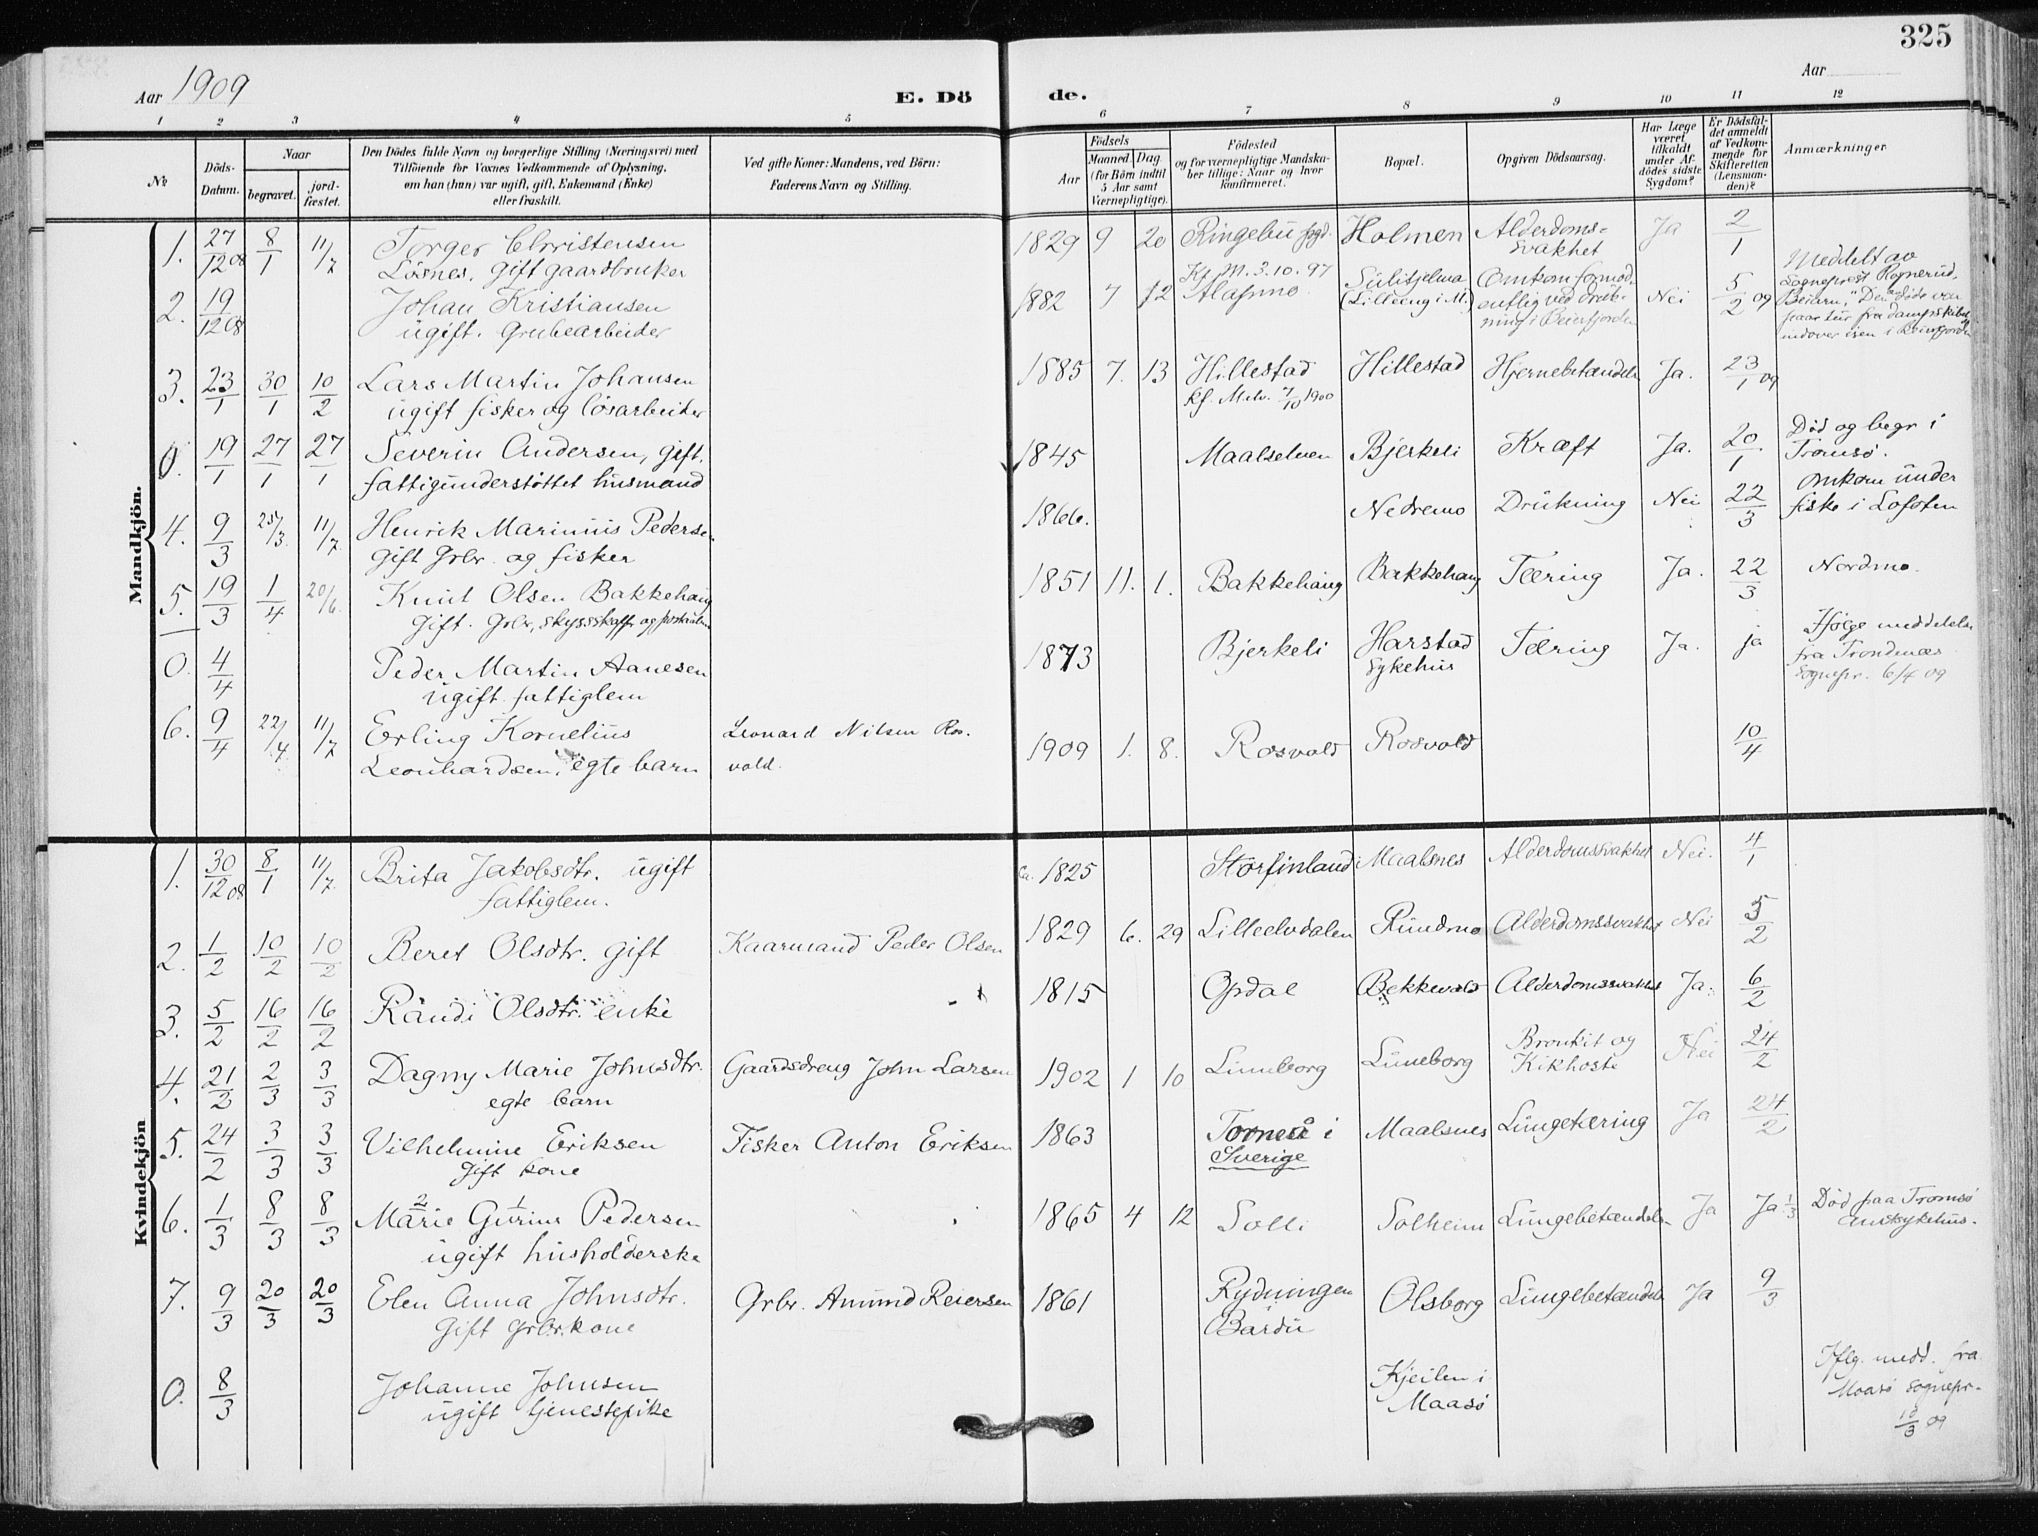 325
Aar 1909
E. Dö
de.
Aar
1 2 3 4 5 6 7 8 9 10 11 12
No
Döds-
Datum.
Naar
begravet.
jord-
fæstet.
Den Dödes fulde Navn og borgerlige Stilling (Næringsvei) med
Tilföiende for Voxnes Vedkommende af Oplysning,
om han (hun) var ugift, gift, Enkemand (Enke)
eller fraskilt.
Ved gifte Koner: Mandens, ved Börn:
Faderens Navn og Stilling.
Födsels
Aar
Maaned Dag
(for Börn indtil
5 Aar samt
Værnepligtige).
Födested
og for værnepligtige Mandska-
ber tillige: Naar og hvor
konfirmeret.
Bopæl.
Opgiven Dödsaarsag.
Har Læge
været
tilkaldt
under Af-
dödes sidste
Sygdom?
Er Dödsfal-
det anmeldt
af Vedkom-
mende for
Skifteretten
(Lensman-
den)?
Anmærkninger
Mandkjön.
1. 27/12 08 8/1 11/7 Torger Christensen 1829 9 20 Ringebu pgd. Holmen Alderdoms= Ja 2/1
Løsnes, gift gaardbruker svakhet
2. 19/12 08 Johan Kristiansen 1882 7 12 Kf. M. 3.10.97 Sulitjelma Omkom formod Nei 5/2 09 Meddelt av
ugift. Grubearbeider Alapmo (Lilleng i M.) entlig ved druk- Sogneprest Rognerud,
ning i Beierfjorden Beiern, "Den døde var
paa tur fra dampskibet
indover isen i Beierfjorden
3. 23/1 30/1 10/2 Lars Martin Johansen 1885 7. 13 Hillestad Hillestad Hjernebetændelse Ja. 23/1 09
ugift fisker og løsarbeider kf. M.elv. 7/10 1900
0. 19/1 27/1 27/1 Severin Andersen, gift, 1845 Maalselven Bjerkeli Kræft Ja. 20/1 Død og begr i
fattigunderstøttet husmand Tromsø.
4. 9/3 25/3 11/7 Henrik Marinius Pedersen 1866. Nedremo Drukning Nei 22/3 Omkom under
gift Grbr. og fisker fiske i Lofoten
5. 19/3 1/4 20/6. Knut Olsen Bakkehaug 1851 11. 1. Bakkehaug Bakkehaug Tæring Ja. 22/3 Nordmo.
gift. Grbr, skysskaffr og
0. 4/4 Peder Martin Aanesen 1873 Bjerkeli Harstad Tæring Ja. ja Ifølge meddelelse
ugift fattiglem sykehus fra Trondenæs
Sognepr. 6/4 09
6. 9/4 22/4. 11/7 Erling Kornelius Leonard Nilsen Ros- 1909 1. 8. Rosvold Rosvold 10/4
Leonhardsen, egte barn vold.
Kvindekjön
1. 30/12 08 8/1 11/7. Brita Jakobsdtr. ugift ca. 1825 Storfinland Maalsnes Alderdomssvakhet Nei. 4/1
fattiglem.
2. 1/2 10/2 10/2 Beret Olsdtr. gift Kaarmand Peder Olsen 1829 6. 29 Lilleelvdalen Rundmo Alderdomssvakhet Nei 5/2
3. 5/2 16/2 16/2 Randi Olsdtr. enke 1815 Opdal Bekkevold Alderdomssvakhet Ja. 6/2
4. 21/2 2/3 3/3 Dagny Marie Johnsdtr. Gaardsdreng John Larsen 1902 1 10 Luneborg Luneborg Bronkit og Nei 24/2
egte barn Kikhoste
5. 24/2 3/3 3/3 Vilhelmine Eriksen Fisker Anton Eriksen 1863 Torneå i Maalsnes Lungetæring Ja 24/2
gift kone Sverige
6. 1/3 8/3 8/3 Marie Gurine Pedersen 1865 4 12 Solli Solheim Lungebetændelse Ja Ja 1/3 Død paa Tromsø
2 1
ugift husholderske amtsykehus.
7. 9/3 20/3 20/3 Elen Anna Johnsdtr. Grbr. Amund Reiersen 1861 Rydningen Olsborg Lungebetændelse Ja 9/3
gift grbr.kone Bardu
0. 8/3 Johanne Johnsen Kjeilen i Iflg. medd. fra
ugift tjenestepike Maasø Maasø sognepr.
10/3 09